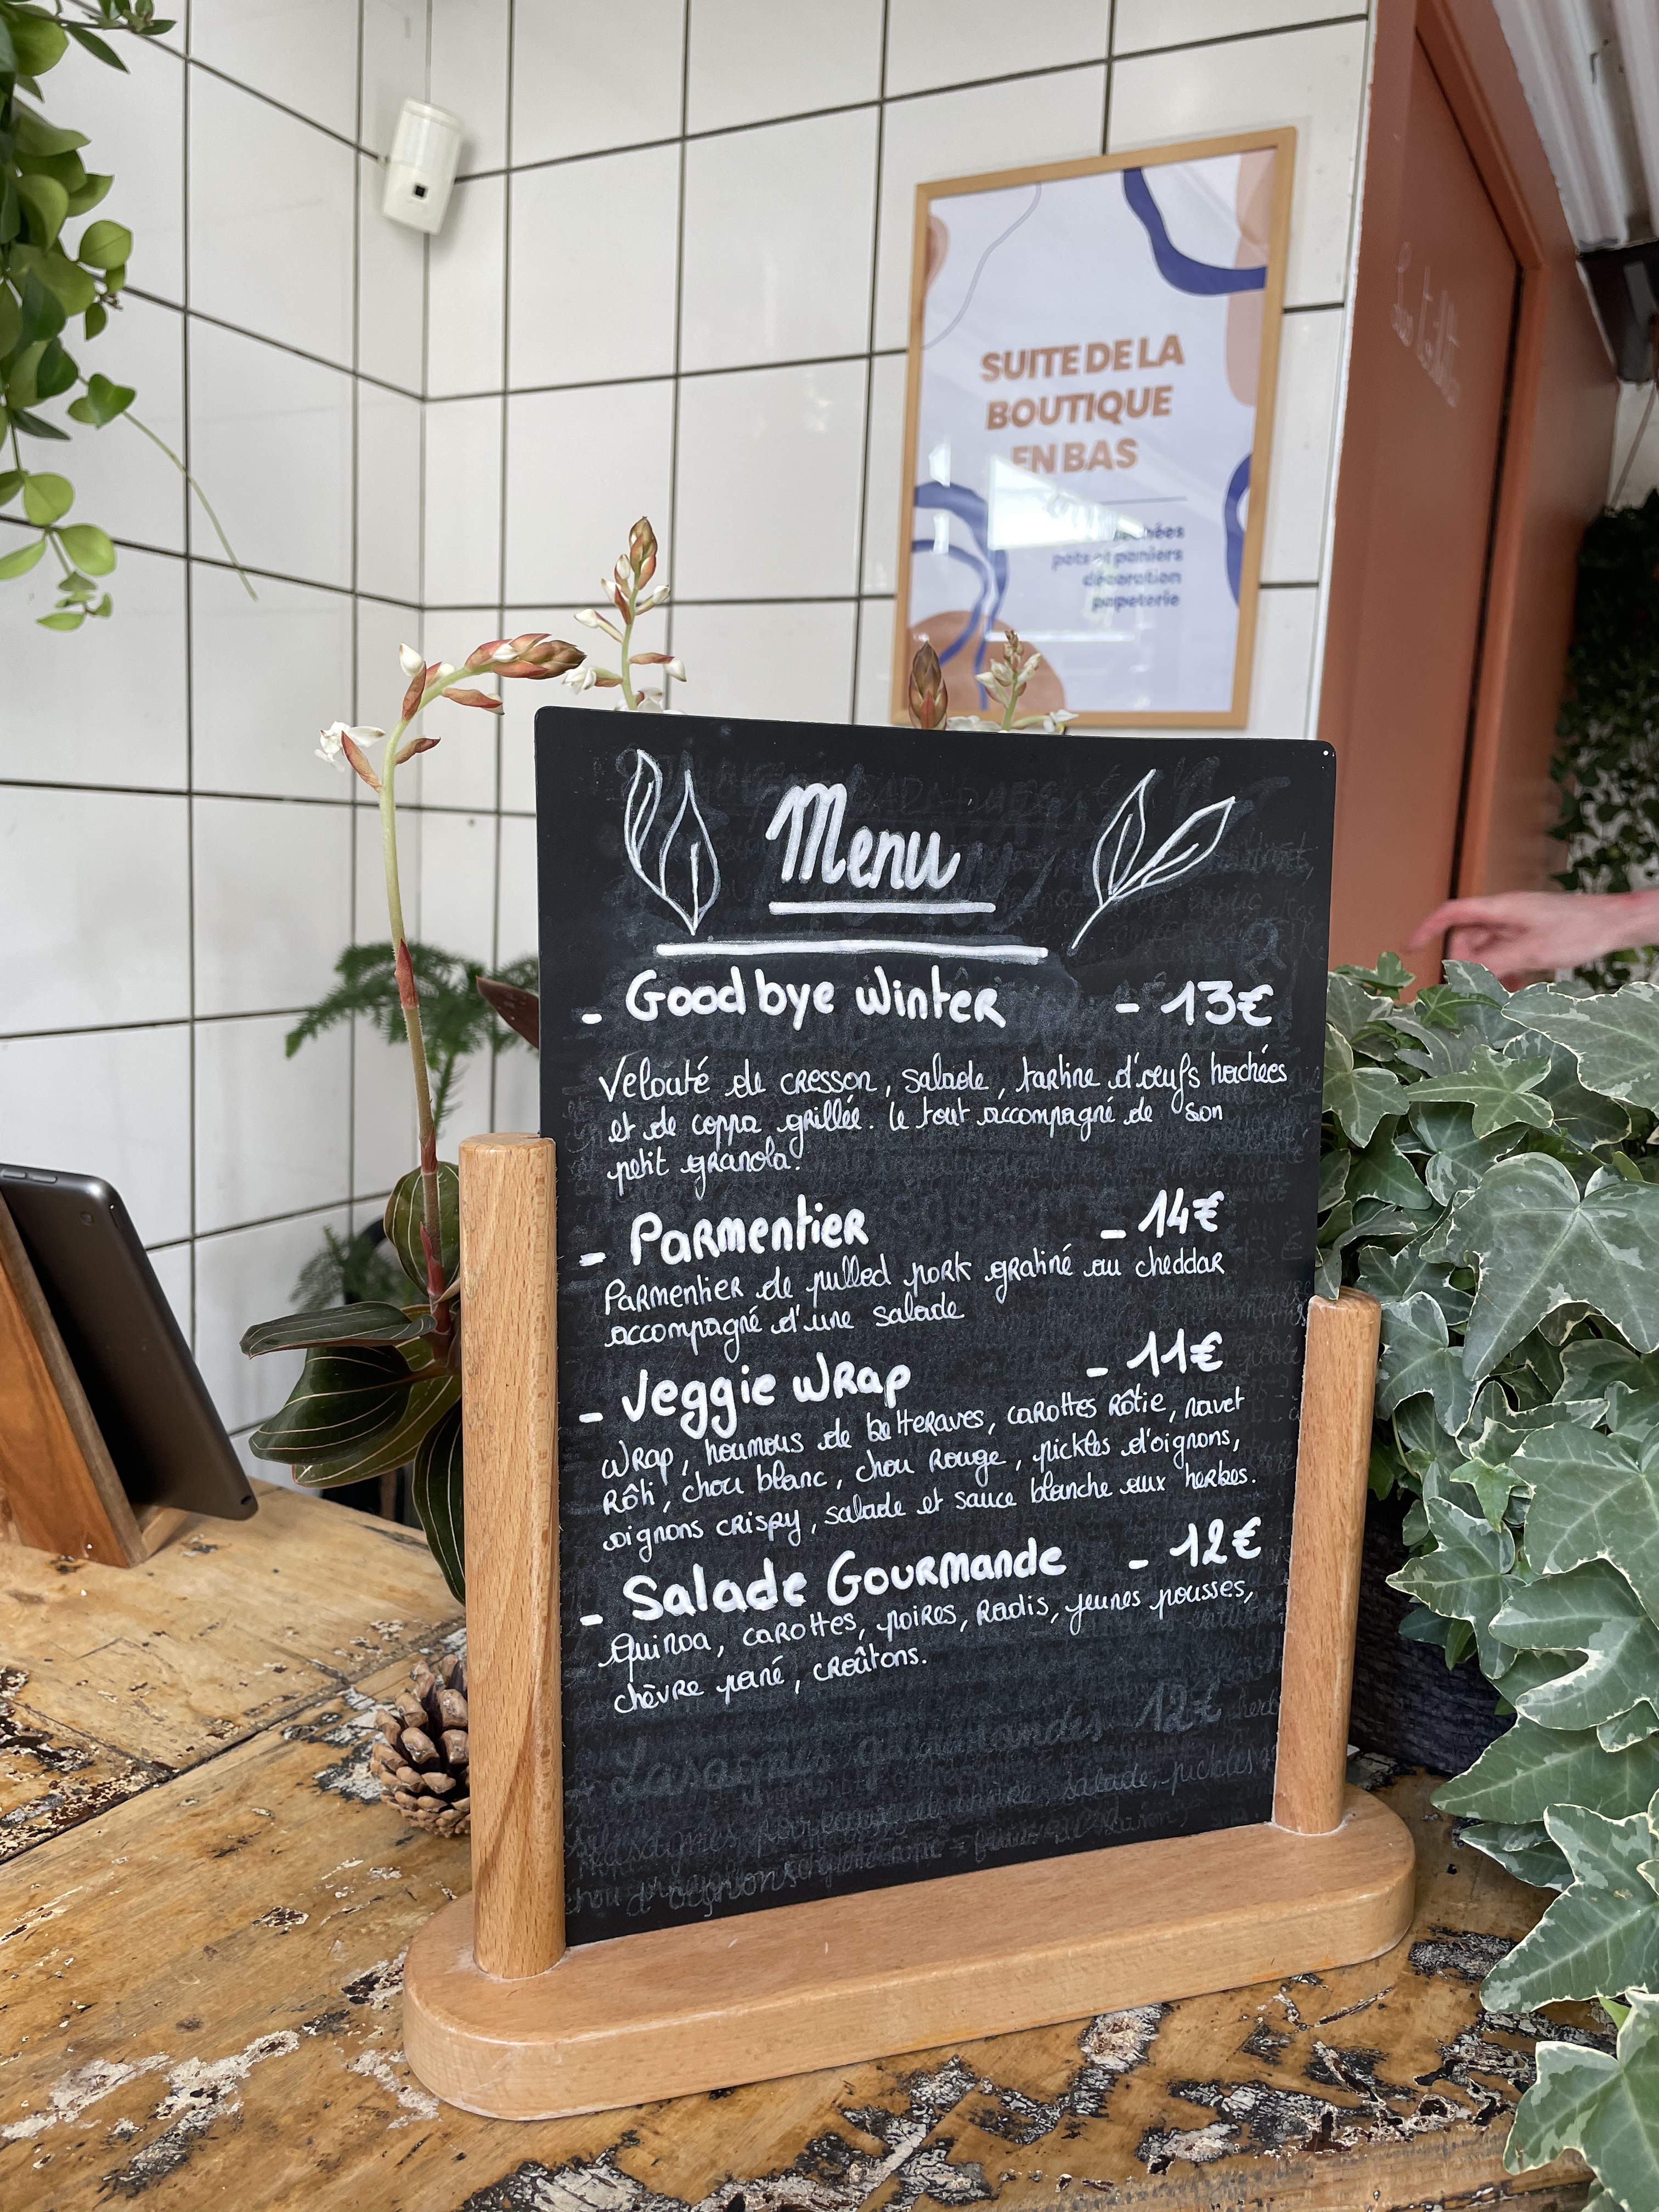 SUITE DE LA
BOUTIQUE
EN BAS
pots et paniers
décoration
papeterie
Menu
- Goodbye winter - 13€
Velouté de cresson, salade, tartine d'œufs hachées
et de coppa grillée. le tout accompagné de son
petit granola.
- Parmentier - 14€
Parmentier de pulled pork gratiné au cheddar
accompagné d'une salade
- Veggie wrap - 11€
Wrap, houmous de betteraves, carottes rôtie, navet
rôti, chou blanc, chou rouge, pickles d'oignons,
oignons crispy, salade et sauce blanche aux herbes.
- Salade Gourmande - 12€
Quinoa, carottes, poires, radis, jeunes pousses,
chèvre pané, croûtons.
Lasagnes gourmandes 12€
salade, pickles
d'oignons